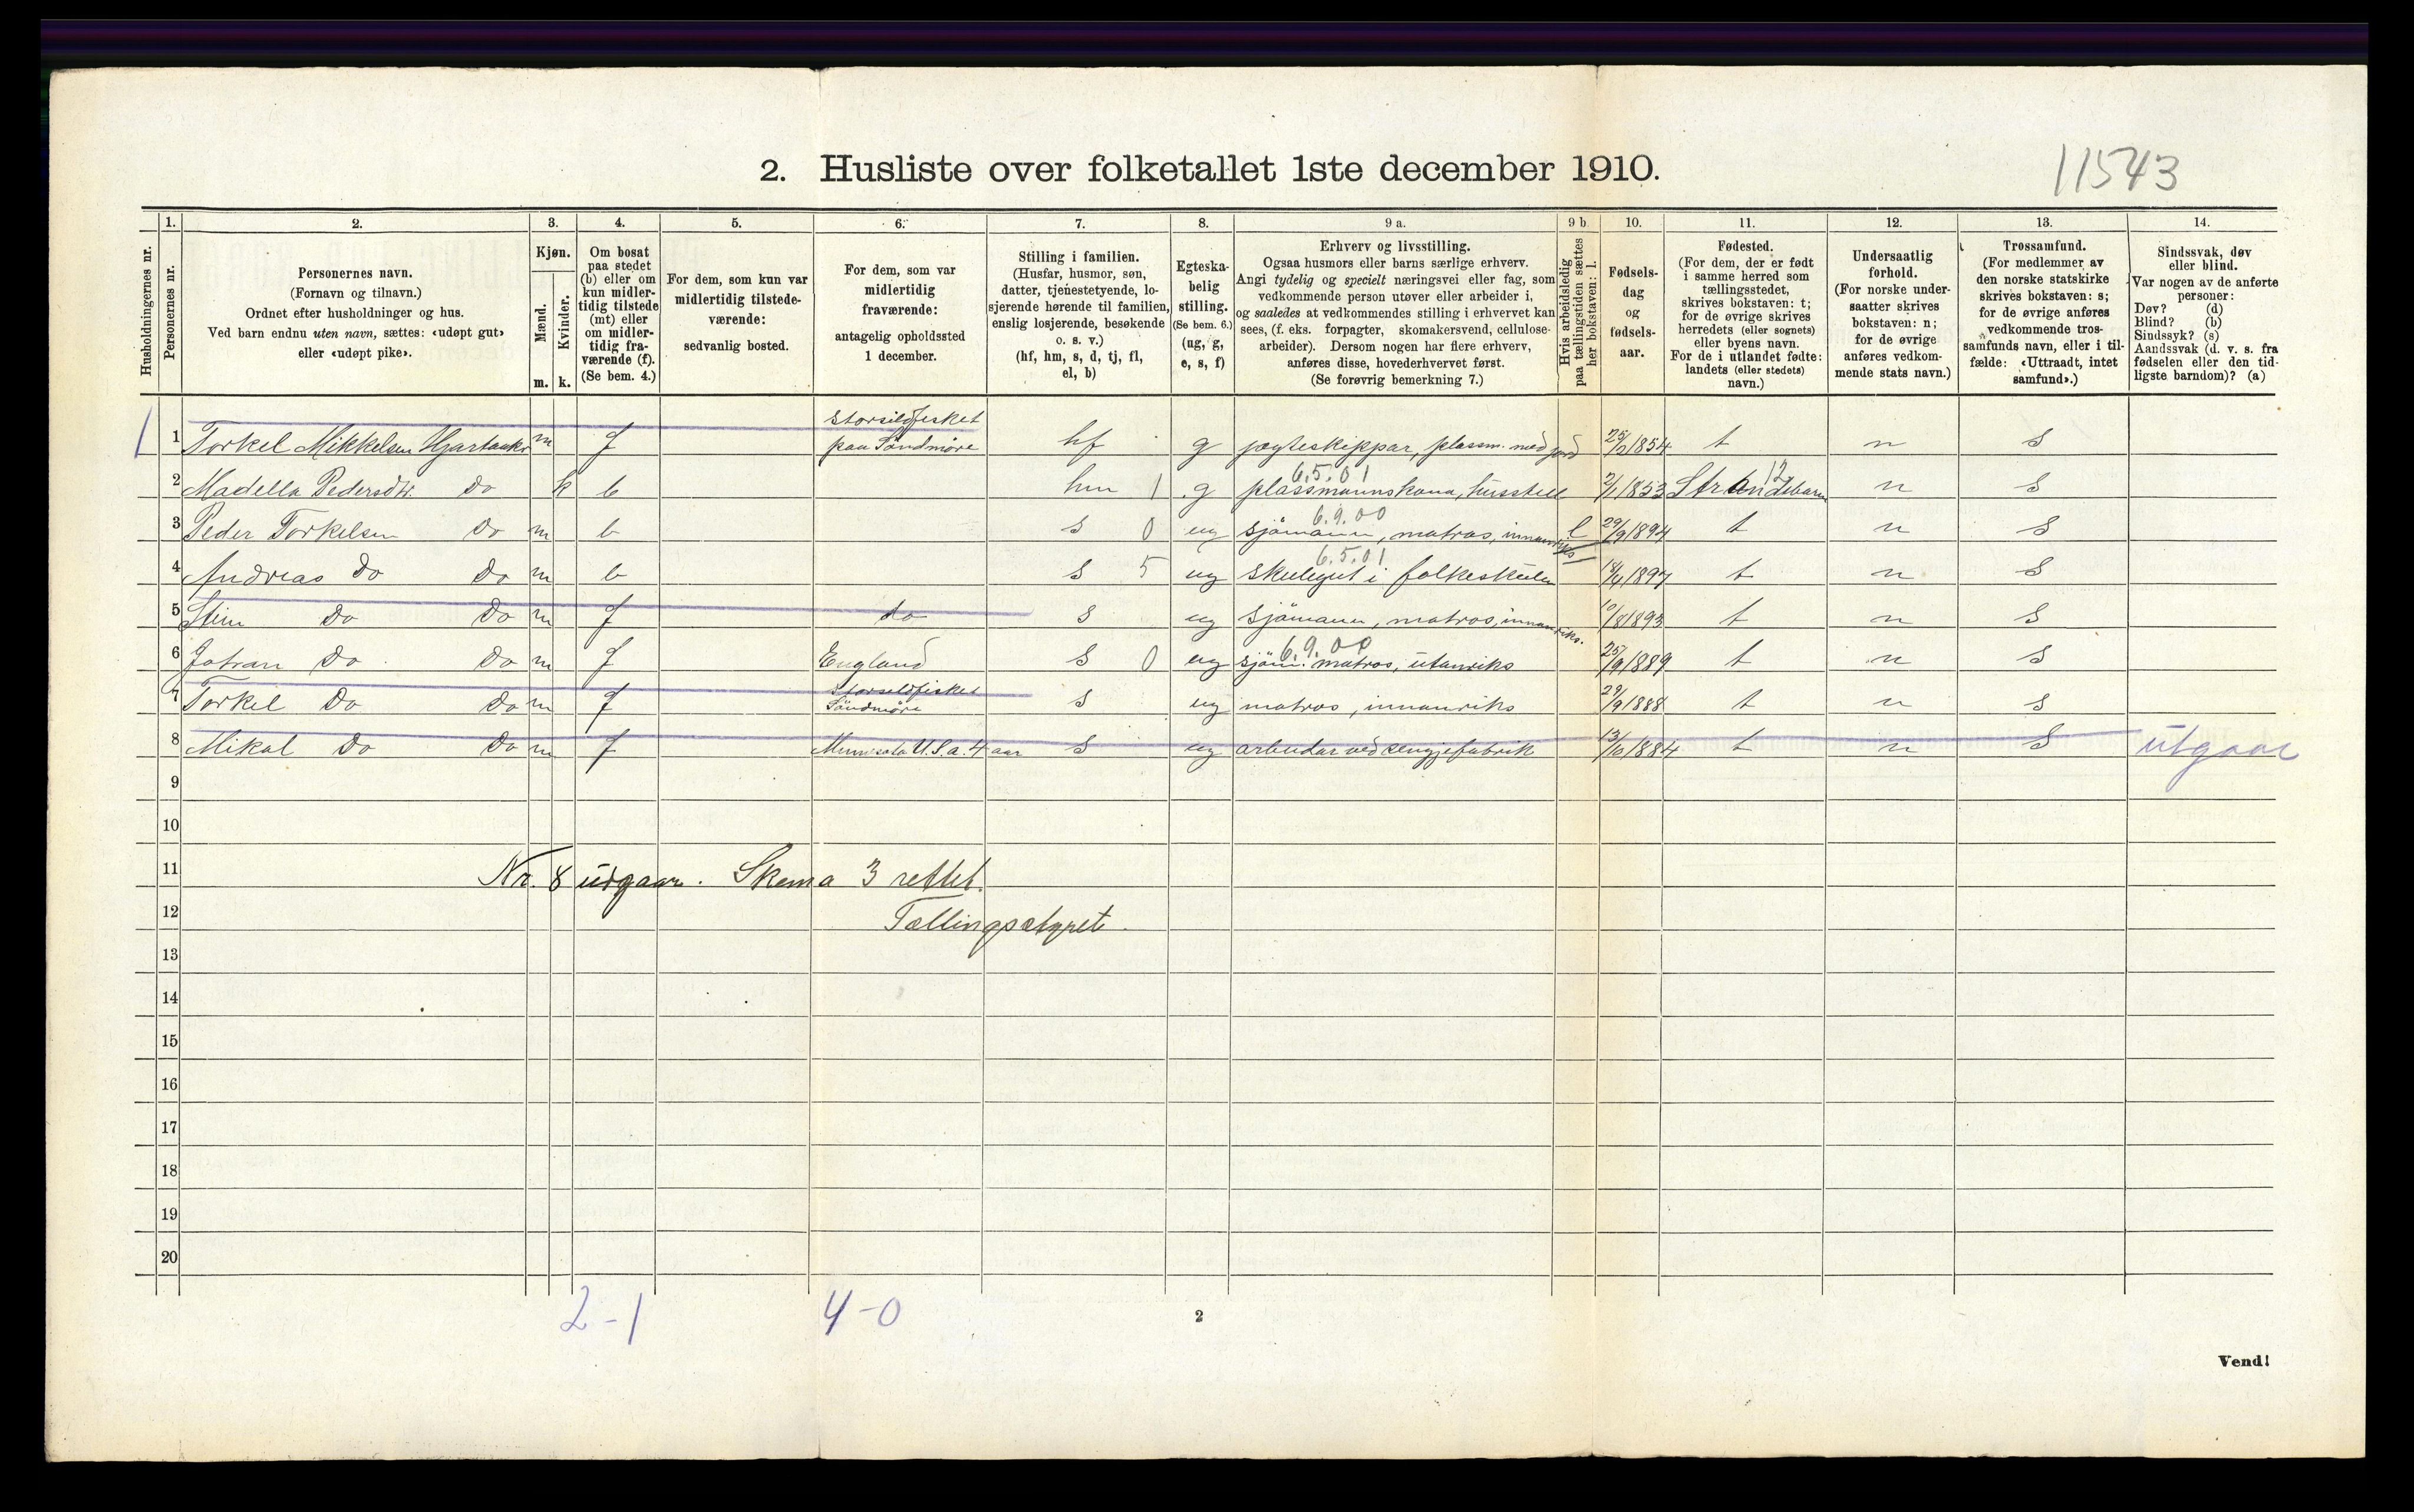 2. Husliste over folketallet 1ste december 1910.
11543
1. 2. 3. 4. 5. 6. 7. 8. 9 a. 9 b. 10. 11. 12. 13. 14.
Husholdningernes nr.
Personernes nr.
Personernes navn.
(Fornavn og tilnavn.)
Ordnet efter husholdninger og hus.
Ved barn endnu uten navn, sættes: «udøpt gut»
eller «udøpt pike».
Kjøn.
Mænd.
Kvinder.
m. k.
Om bosat
paa stedet
(b) eller om
kun midler-
tidig tilstede
(mt) eller
om midler-
tidig fra-
værende (f).
(Se bem. 4.)
For dem, som kun var
midlertidig tilstede-
værende:
sedvanlig bosted.
For dem, som var
midlertidig
fraværende:
antagelig opholdssted
1 december.
Stilling i familien.
(Husfar, husmor, søn,
datter, tjenestetyende, lo-
sjerende hørende til familien,
enslig losjerende, besøkende
o. s. v.)
(hf, hm, s, d, tj, fl,
el, b)
Egteska-
belig
stilling.
(Se bem. 6.)
(ug, g,
e, s, f)
Erhverv og livsstilling.
Ogsaa husmors eller barns særlige erhverv.
Angi tydelig og specielt næringsvei eller fag, som
vedkommende person utøver eller arbeider i,
og saaledes at vedkommendes stilling i erhvervet kan
sees, (f. eks. forpagter, skomakersvend, cellulose-
arbeider). Dersom nogen har flere erhverv,
anføres disse, hovederhvervet først.
(Se forøvrig bemerkning 7.)
Hvis arbeidsledig
paa tællingstiden sættes
her bokstaven: l.
Fødsels-
dag
og
fødsels-
aar.
Fødested.
(For dem, der er født
i samme herred som
tællingsstedet,
skrives bokstaven: t;
for de øvrige skrives
herredets (eller sognets)
eller byens navn.
For de i utlandet fødte:
landets (eller stedets)
navn.)
Undersaatlig
forhold.
(For norske under-
saatter skrives
bokstaven: n;
for de øvrige
anføres vedkom-
mende stats navn.)
Trossamfund.
(For medlemmer av
den norske statskirke
skrives bokstaven: s;
for de øvrige anføres
vedkommende tros-
samfunds navn, eller i til-
fælde: «Uttraadt, intet
samfund».)
Sindssvak, døv
eller blind.
Var nogen av de anførte
personer:
Døv? (d)
Blind? (b)
Sindssyk? (s)
Aandssvak (d. v. s. fra
fødselen eller den tid-
ligste barndom)? (a)
storsildfisket
1 1 Torkel Mikkelsen m f paa Søndmøre hf g jægteskippar, plassm. med jord 1854 t n s
6.5.01 12
2 Madella Pedersdtr. do k b hm 1 g plassmannskona, husstell 1853 Strandebarm n s
6.9.00
3 Peder Torkelsen do m b s 0 ug sjömann, matros, innanriks l 29/9 1894 t n s
6.5.01
4 Andreas do do m b s 5 ug skulegut i folkeskulen 1897 t n s
5 do do m f do s ug sjömann, matros, innanriks. 10/8 1893 t n s
6.9.00
6 do do m f England s 0 ug sjöm. matros, utanriks 25/9 1889 t n s
Storsildfisket
7 Torkel do do m f Söndmöre s ug matros, innanriks 29/9 1888 t n s
8 Mikal do do m f U.S.a. 4 aar s ug arbeidar ved sengjefabrik 13/10 1884 t n s utgaar
9
10
11 Nr. 8 udgaar. Skema 3 rettet.
12 Tællingsstyret
13
14
15
16
17
18
19
20
2-1 4-0
2
Vend!